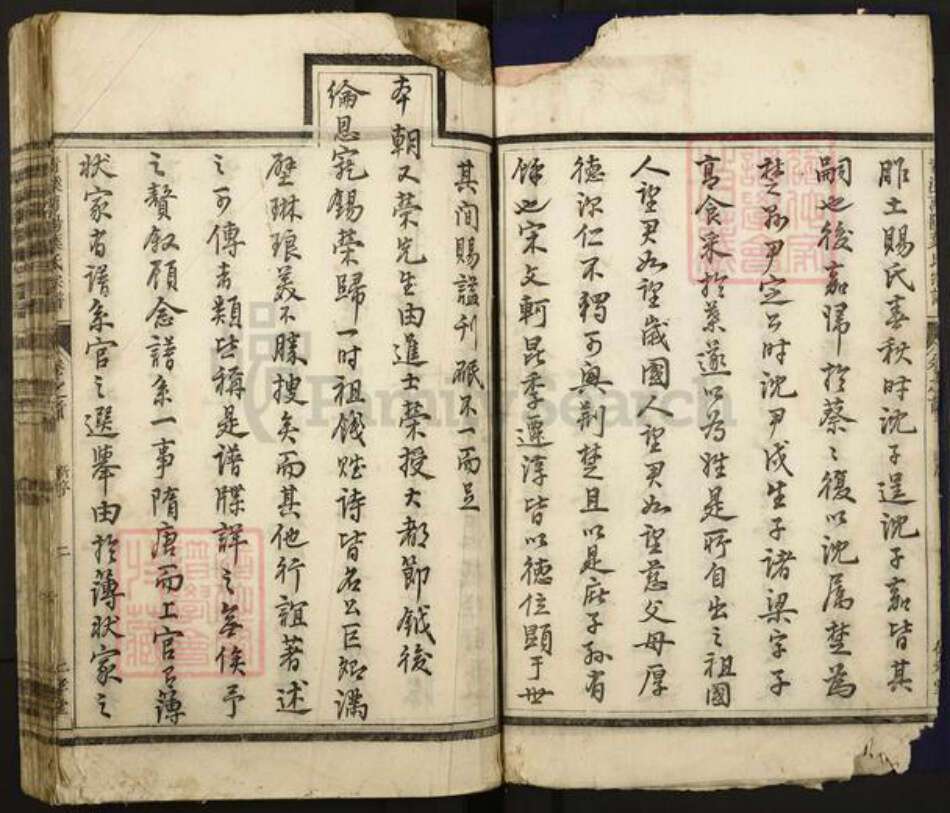 胙土賜氏春秋時沈子逞沈子嘉皆其
嗣也後嘉歸於蔡之後以沈屬楚為
楚縣尹定公時沈尹戍生子諸梁字子
高食采於葉遂以為姓是所自出之祖國
人望君如望歲國人望君如望慈父母厚
德深仁不獨可興荊楚且以是庇子孫有
餘也宋文軻昆季遷淳皆以德位顯于世
其間賜諡刊碾不一而足
本朝又榮先生由進士榮授大都節鉞後
綸恩寵錫榮歸一時祖餞贈詩皆名公巨卿滿
壁琳琅美不勝搜矣而其他行誼著述
之可傳者類皆稱是譜牒詳之無俟予
之贅敘顧念譜系一事隋唐而上官有薄
狀家有譜系官之選舉由於薄狀家之
二
FamilySearch